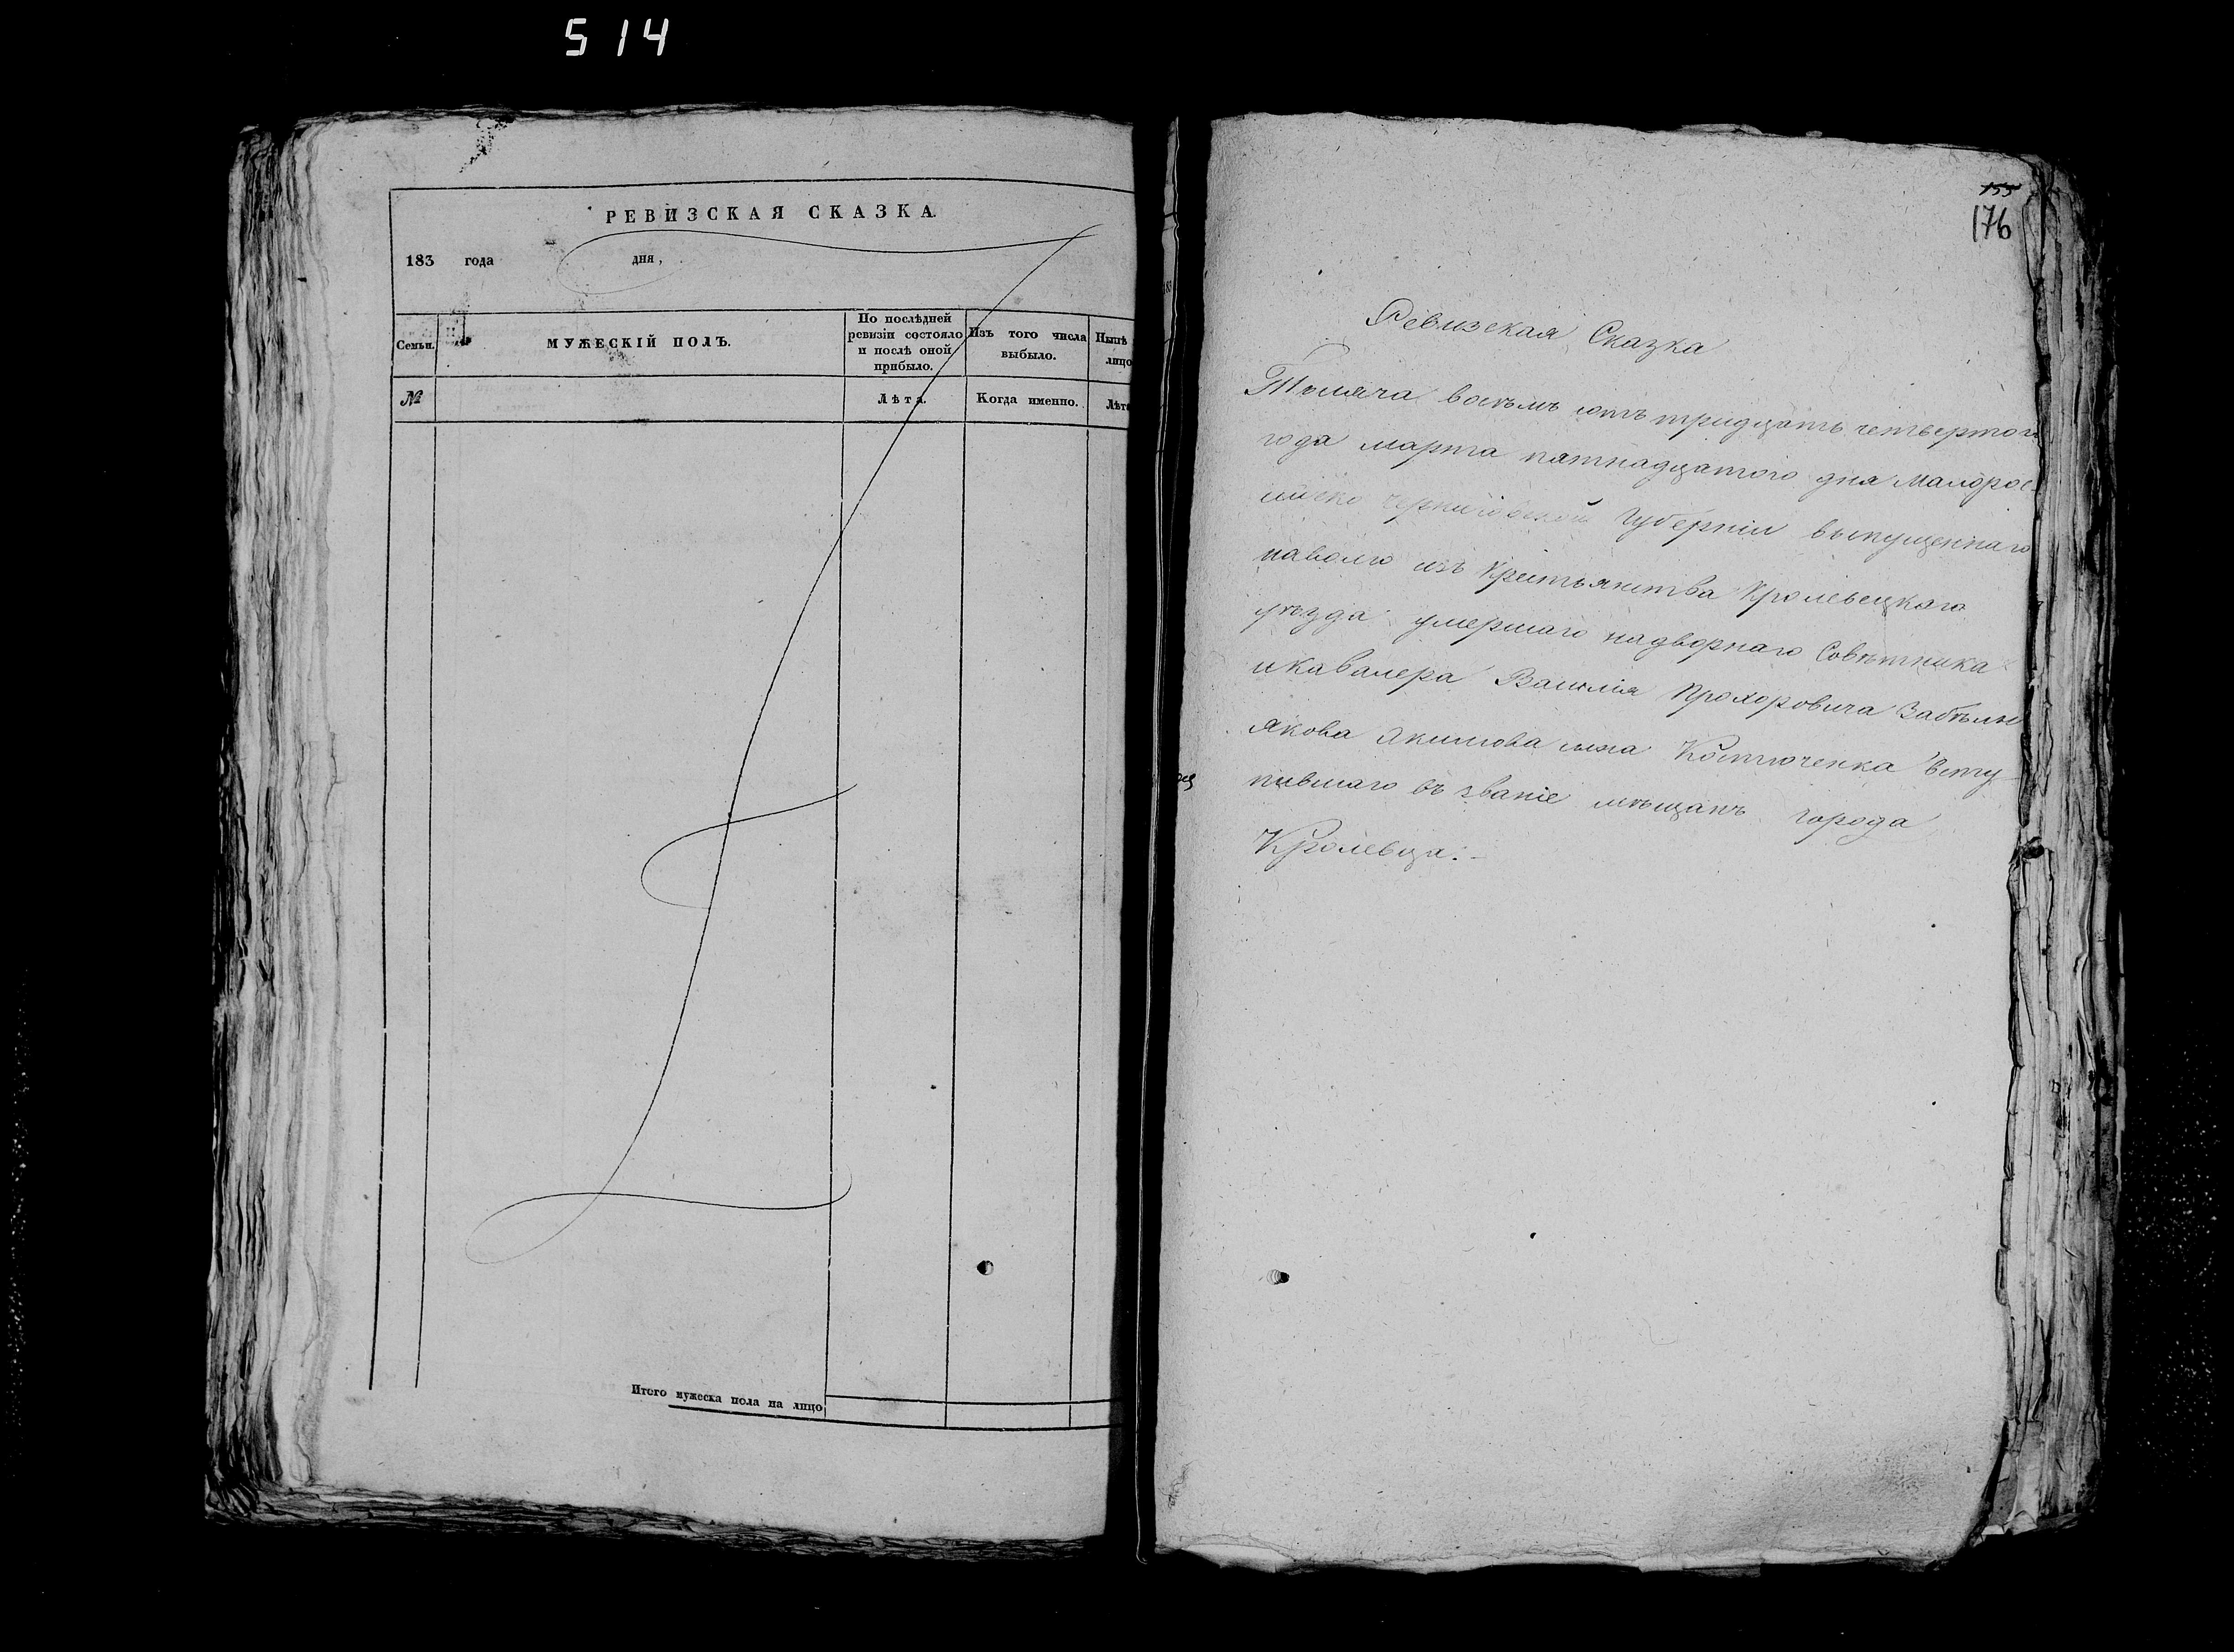 514
РЕВИЗСКАЯ СКАЗКА.
183 года дня,
Семьи.
МУЖЕСКІЙ ПОЛЪ.
По послѣдней ревизіи состояло и послѣ оной прибыло.
Изъ того числа выбыло.
Нынѣ лицо
№
Лѣта.
Когда именно.
Лѣта
Итого мужеска пола на лицо
155
176
Ревизская Сказка
Тысяча восемь сотъ тридцать четвертого
года марта пятнадцатого дня Малорос-
сійско Черниговской Губерніи выпущеннаго
наволю изъ крестьянства Кролевецкаго
уѣзда умершаго надворнаго Совѣтника
и кавалера Василія Прохоровича Забѣлы
Якова Акимова сына Костюченка всту-
пившаго въ званіе мѣщанъ города
Кролевца.